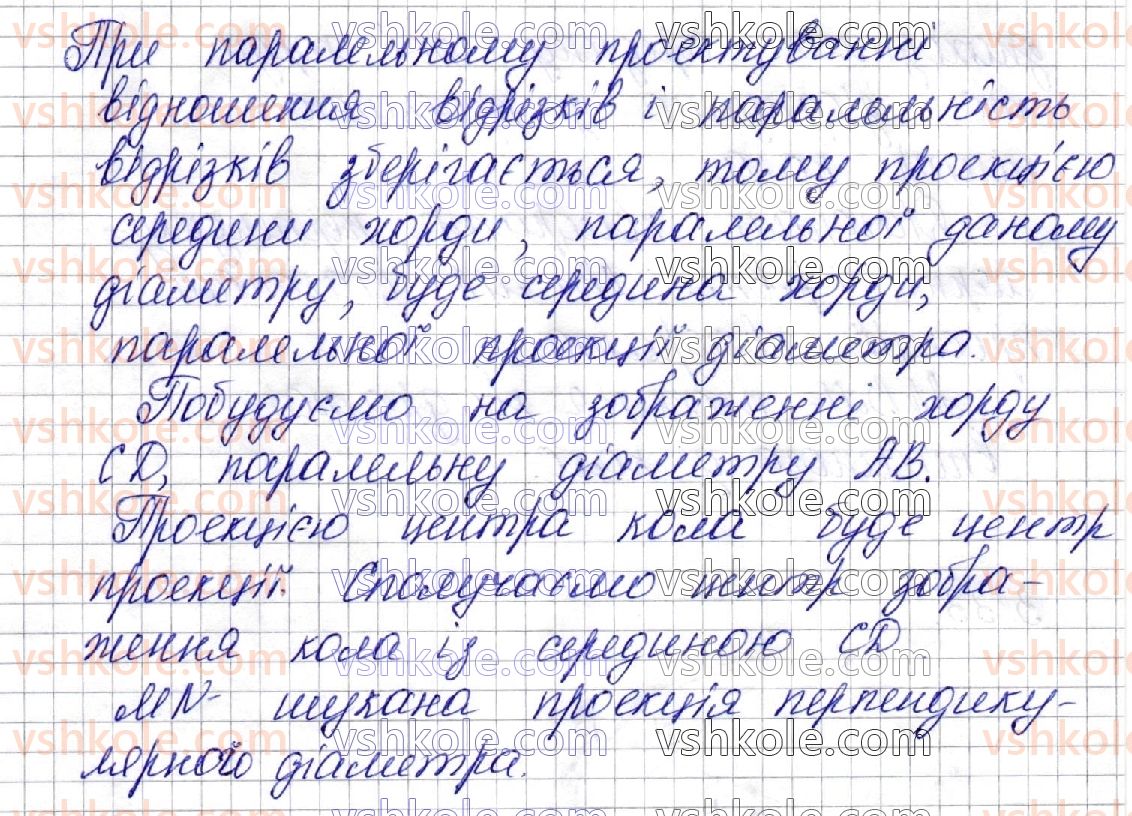 При паралельному проектуванні
відношення відрізків і паралельність
відрізків зберігається, тому проекцією
середини хорди, паралельної даному
діаметру, буде середина хорди,
паралельної проекції діаметра.
Побудуємо на зображенні хорду
CD, паралельну діаметру AB.
Проекцією центра кола буде центр
проекції. Сполучаємо центр зобра-
ження кола із серединою CD
MN- шукана проекція перпендику-
лярного діаметра.